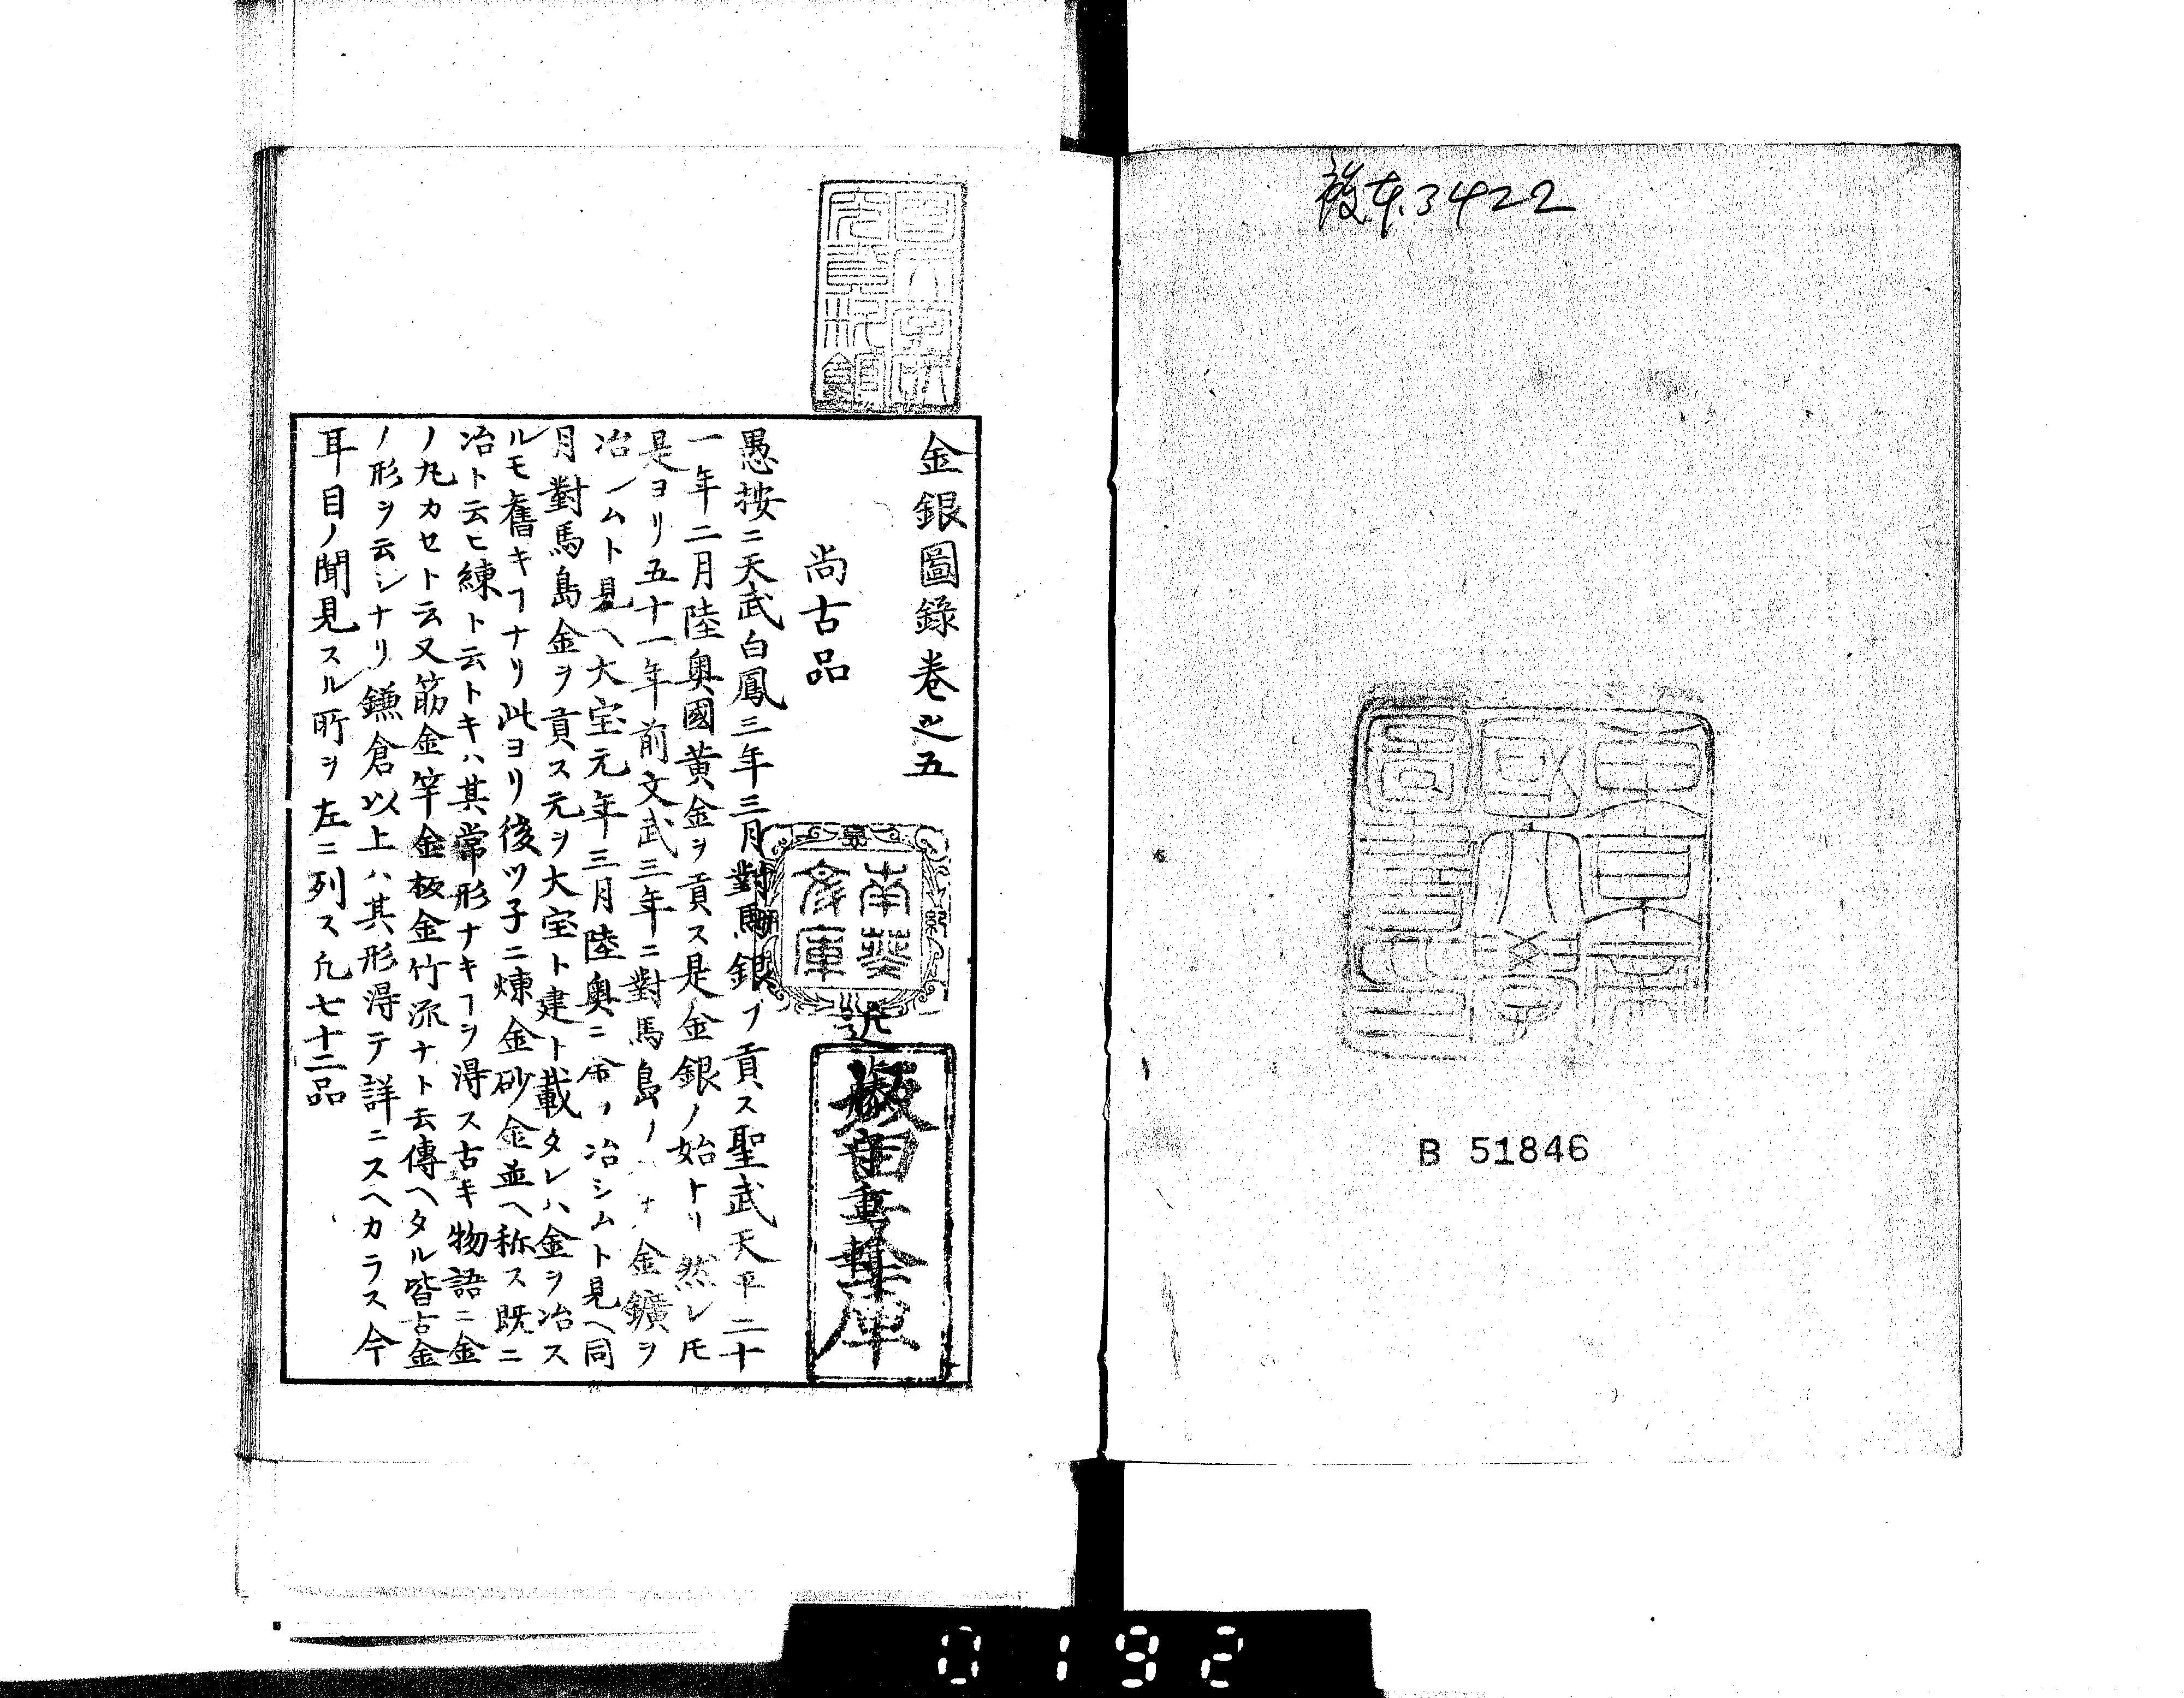 複本3422
東京帝国大学図書印
B 51846
金銀圖錄卷之五
尚古品
南葵文庫
愚按ニ天武白鳳三年三月對馬銀ヲ貢ス聖武天平二十
一年二月陸奥國黄金ヲ貢ス是金銀ノ始トリ然レ𪜈
是ヨリ五十一年前文武三年ニ對馬島ノ 金鑛ヲ
冶シムト見ヘ大宝元年三月陸奥ニ命ノ冶シムト見ヘ同
月對馬島金ヲ貢ス元ヲ大宝ト建ト載タレハ金ヲ冶ス
ルモ舊キヿナリ此ヨリ後ツ子ニ煉金砂金並ヘ称ス既ニ
冶ト云ヒ練ト云トキハ其常形ナキヿヲ得ス古キ物語ニ金
ノ丸カセト云又筋金竿金板金竹流ナト云傳ヘタル皆古金
ノ形ヲ云シナリ鎌倉以上ハ其形得テ詳ニスヘカラス今
耳目ノ聞見スル所ヲ左ニ列ス凡七十二品
0192